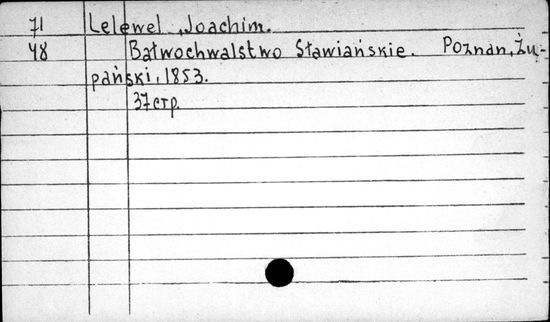 71 Lelewel, Joachim.
48 Bałwochwalstwo Sławiańskie. Poznan, Żu-
pański, 1853.
37 стр.